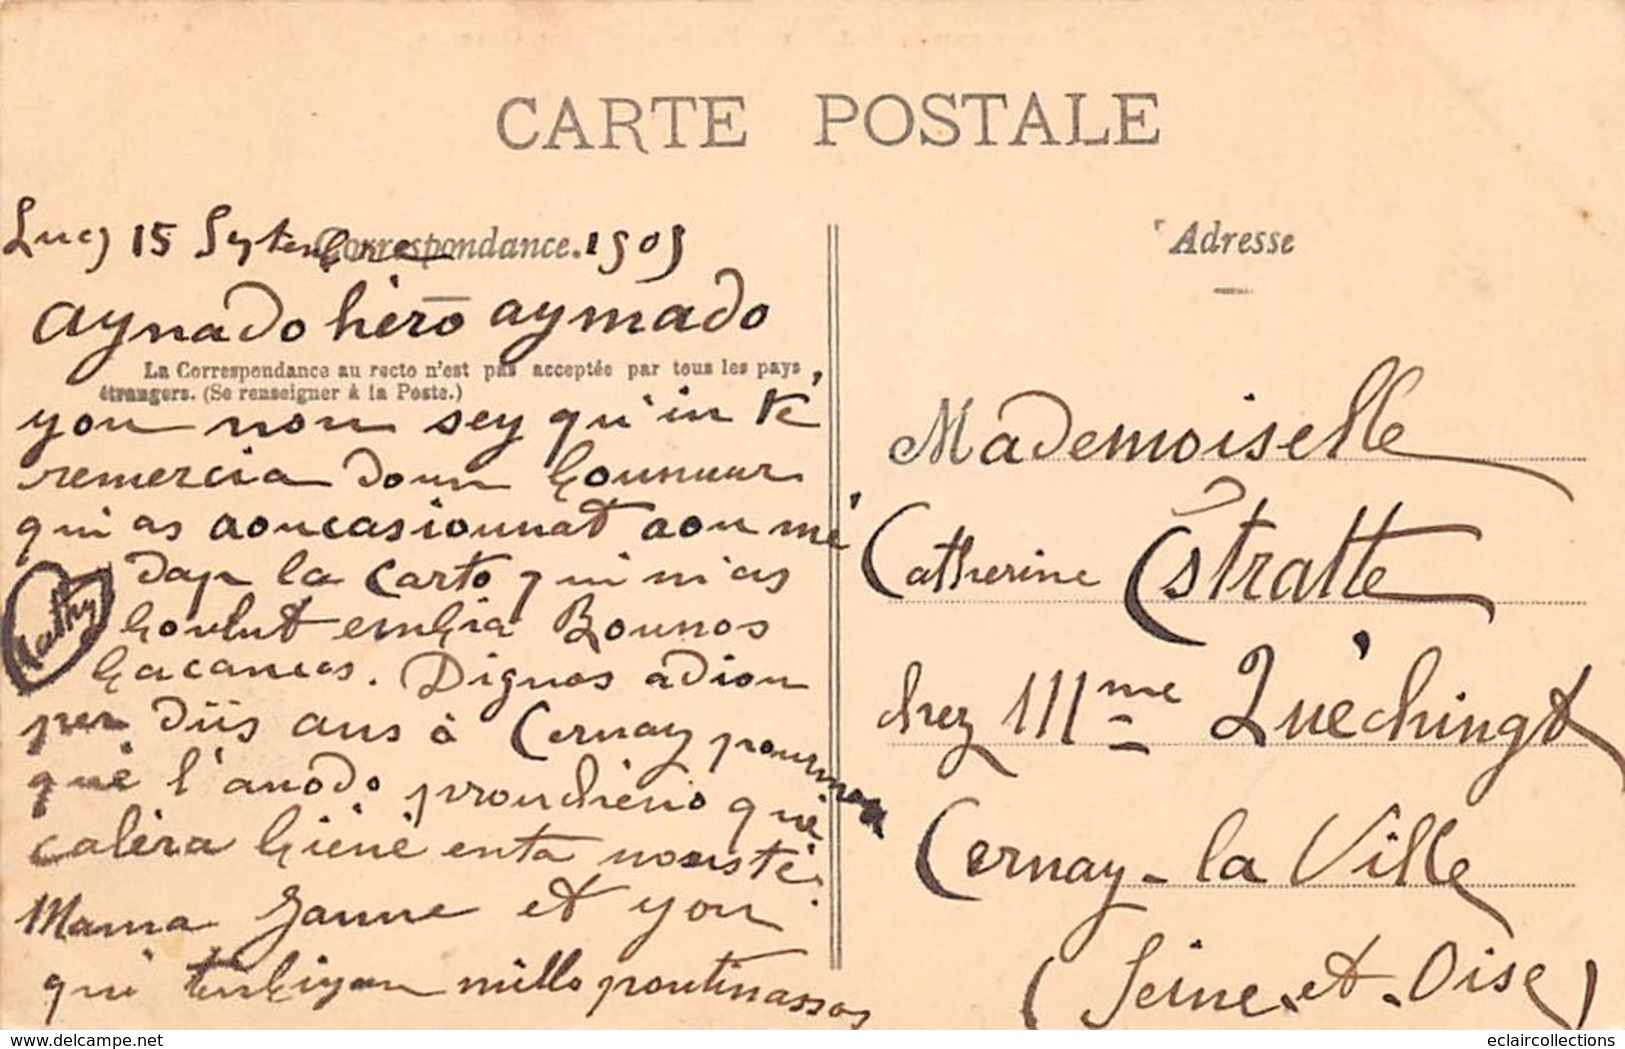 CARTE POSTALE
Lucq 15 Septembre 1909
Correspondance.
Adresse
aynado hèro aymado
La Correspondance au recto n'est pas acceptée par tous les pays
étrangers. (Se renseigner à la Poste.)
you non sey qu'in té
remercia doun hounnur
qui as aoucasiounnat aou mé
dap la carto qui m'as
boulut embia Bounos
bacances. Dignos adiou
per diis ans à Cernay
qué l'anodo qué
calèra biéné enta nousté.
Mama Janne et you
qui t'embiyan millo poutinassos
Mathy
Mademoiselle
Catherine Estratte
chez Mme Quéchingt
Cernay-la Ville
(Seine-et-Oise)
eclaircollections
www.delcampe.net